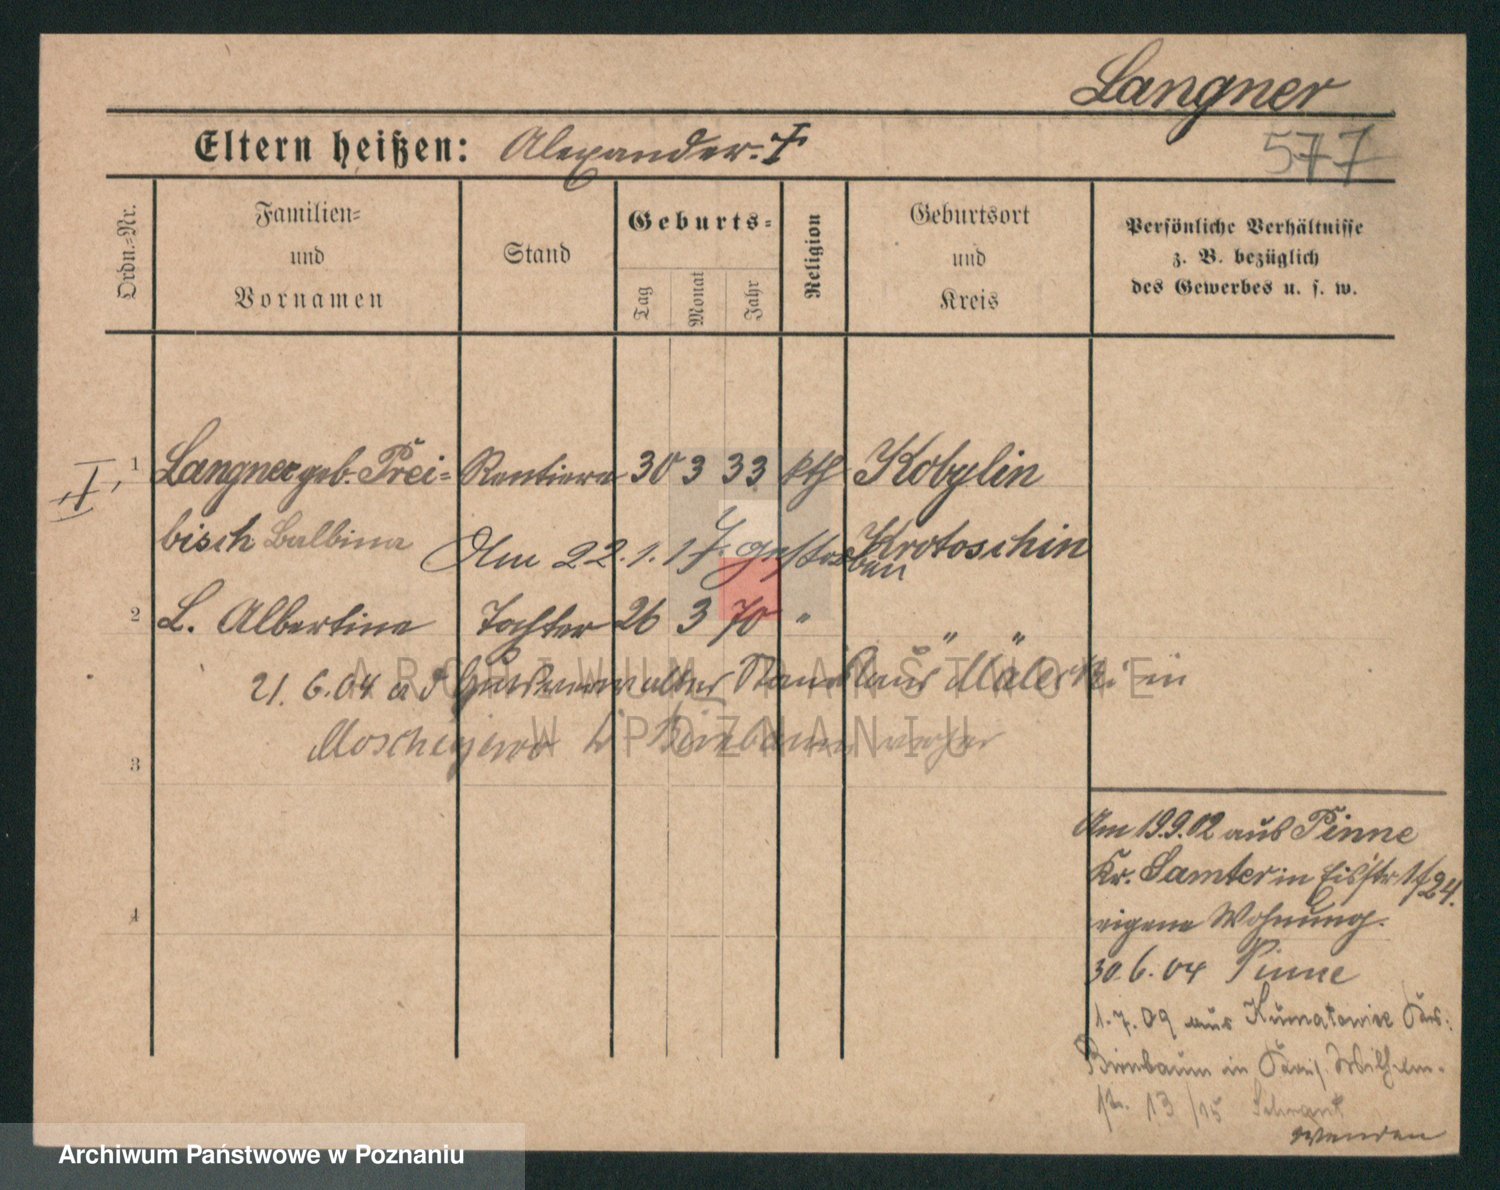 Langner
577
Eltern heißen: Alexander.
Ordn.=Nr.
Familien=
und
Vornamen
Stand
Geburts=
Tag
Monat
Jahr
Religion
Geburtsort
und
Kreis
Persönliche Verhältnisse
z. B. bezüglich
des Gewerbes u. s. w.
1 Langner geb. Prei= Rentiere 30 3 33 kth Kobylin
bisch Balbina Krotoschin
Am 22.1.17. gestorben
2 L. Albertina Tochter 26 3 70 " " "
21.6.04 Gutsverwalter in
ARCHIWUM PAŃSTWOWE
W POZNANIU
3
4
Am 19.9.02 aus Pinne
Kr. Samter in 24.
eigene Wohnung.
30.6.04 Pinne
1.7.09 aus
Birnbaum in Wilhelm-
str. 13
wenden
Archiwum Państwowe w Poznaniu